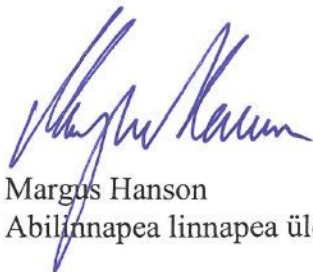 Margus Hanson
Abilinnapea linnapea